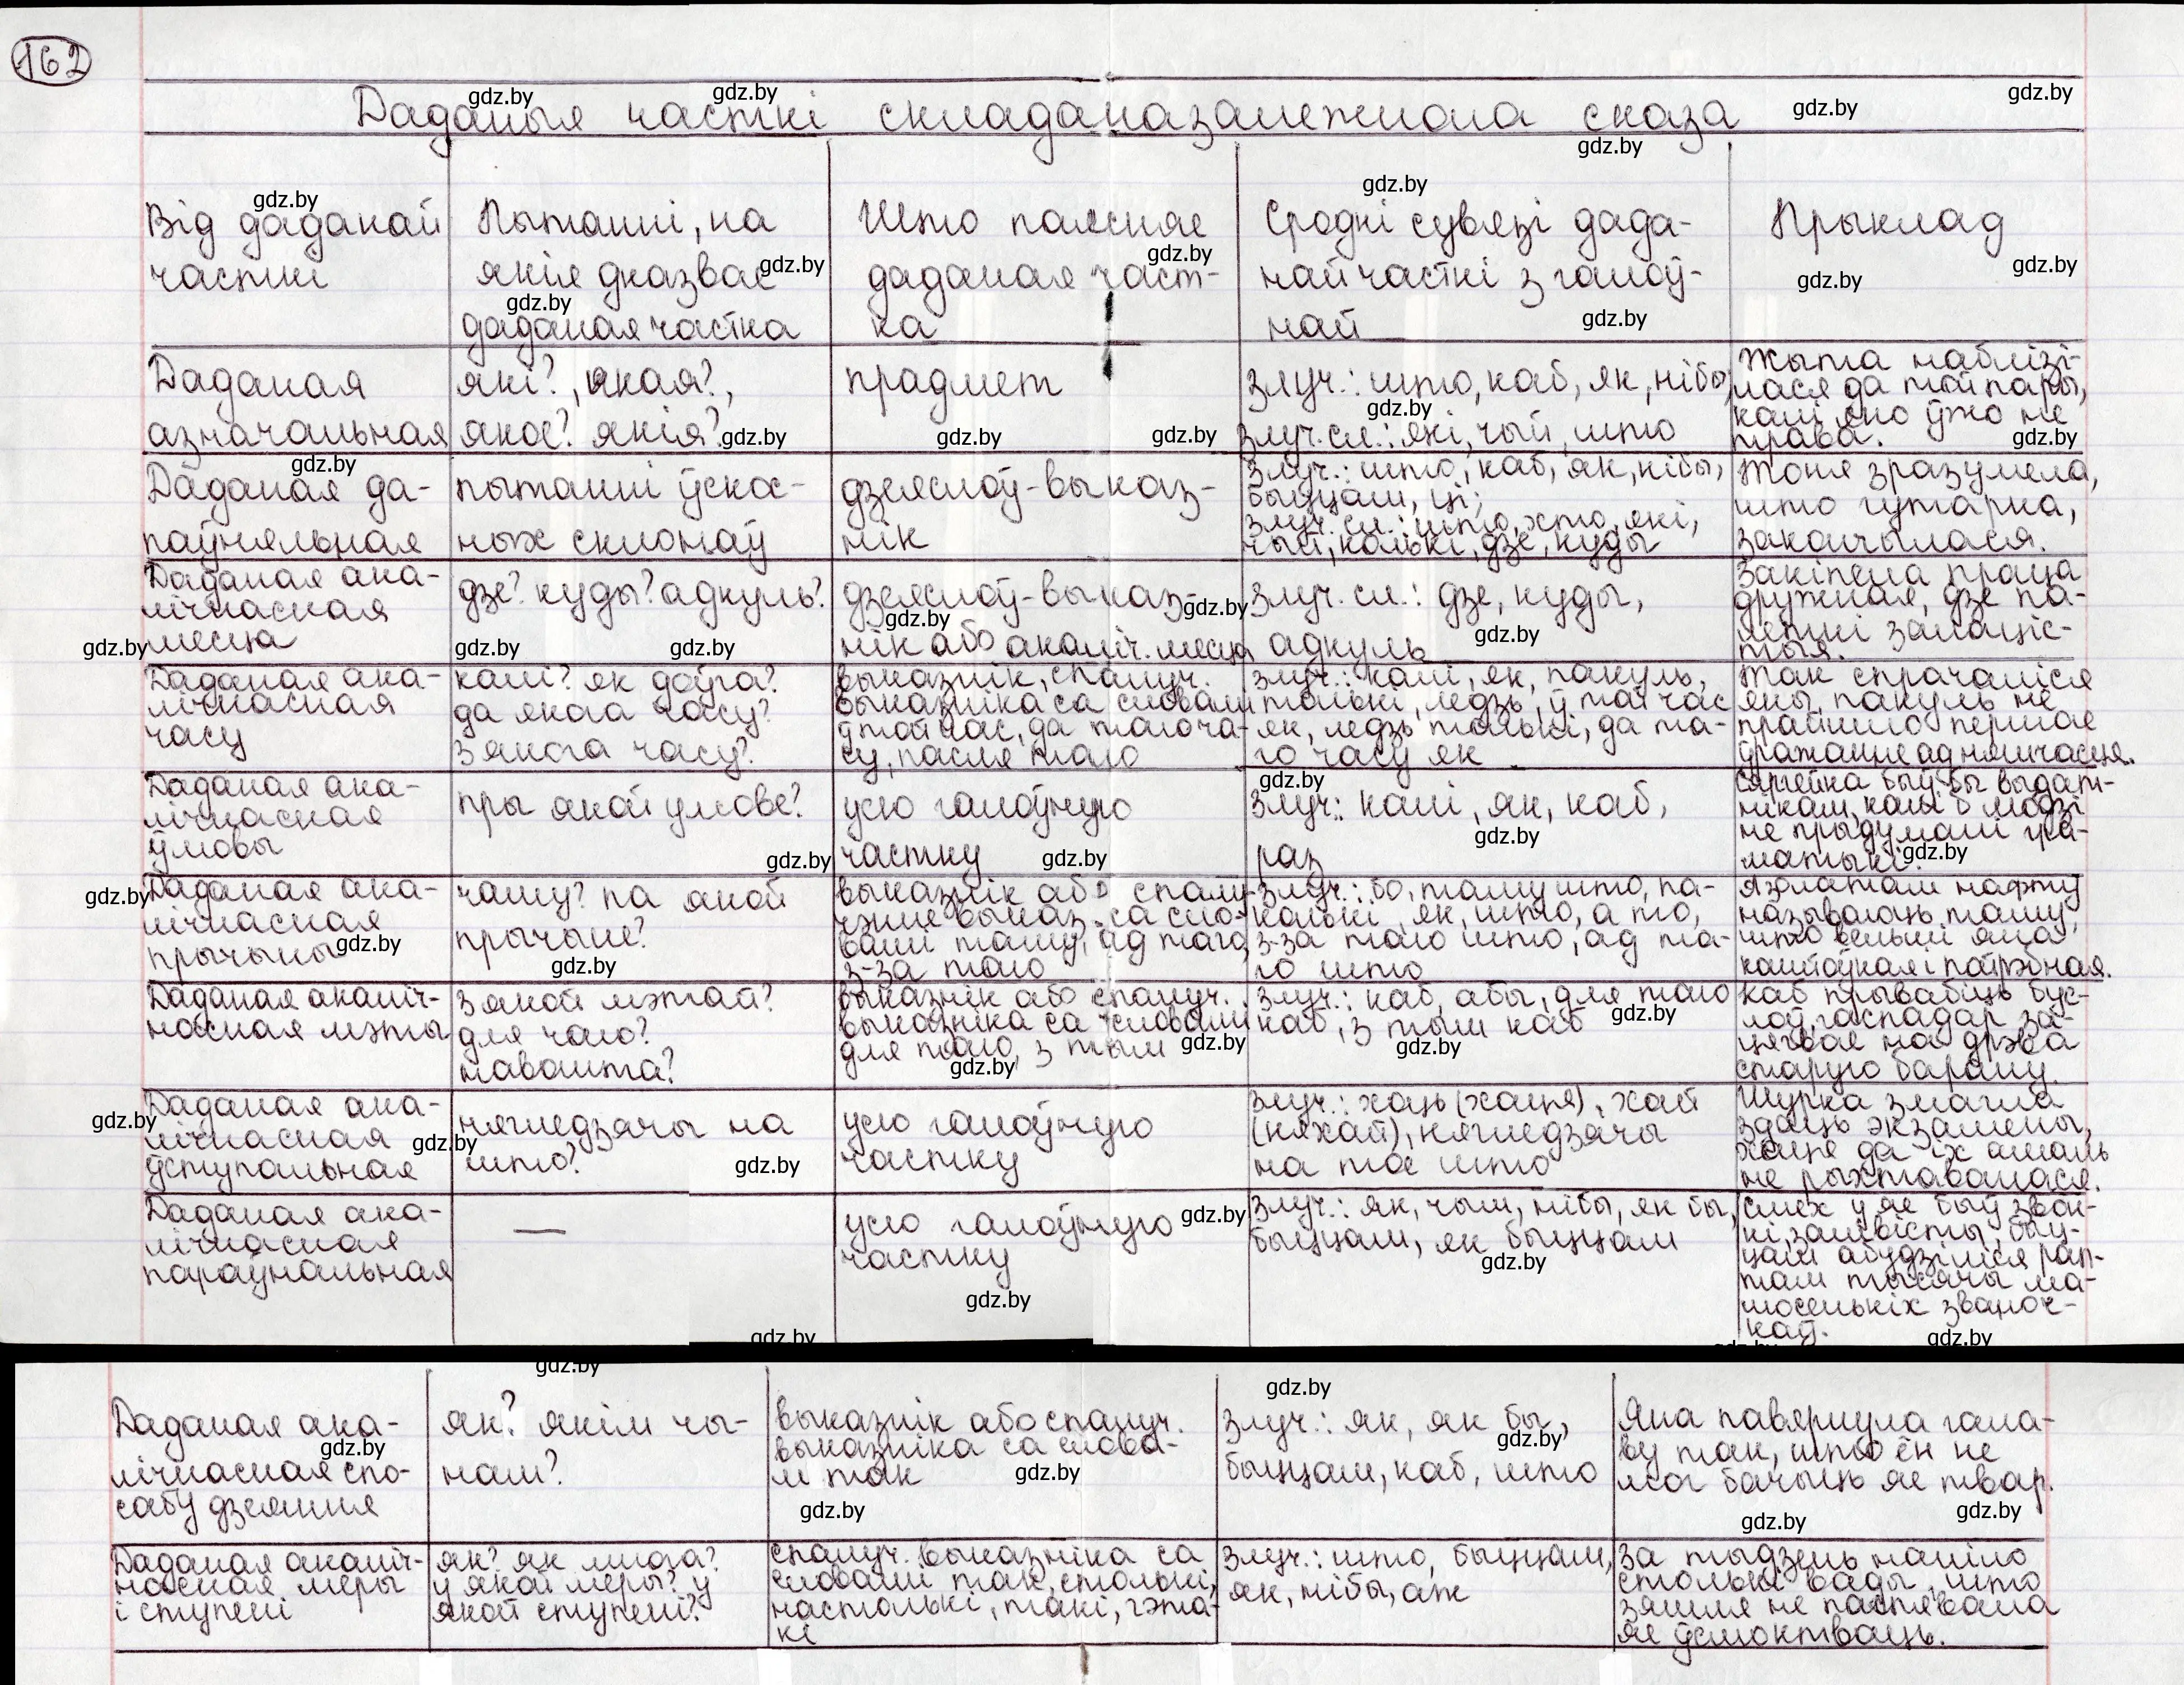 162
Даданыя часткі складаназалежнага сказа
Від даданай
часткі
Пытанні, на
якія дказвае
даданая частка
Што паясняе
даданая част-
ка
Сродкі сувязі дада-
най часткі з галоў-
най
Прыклад
Даданая
азначальная
які?, якая?,
якое? якія?
прадмет
Злуч.: што, каб, як, нібы,
злуч. сл.: які, чый, што
Жыта наблізі-
лася да той пары,
калі яно ўжо не
трава.
Даданая да-
паўняльная
пытанні ўскос-
ных склонаў
дзеяслоў-выказ-
нік
Злуч.: што, каб, як, нібы,
быццам, ці;
злуч. сл.: што, хто, які,
чый, колькі, дзе, куды
Тоня зразумела,
што гутарка,
закончылася.
Даданая ака-
лічнасная
месца
дзе? куды? адкуль?
дзеяслоў-выказ-
нік або акаліч. месца
Злуч. сл.: дзе, куды,
адкуль
Закіпела праца
дружная, дзе па-
леткі залаціс-
тыя.
Даданая ака-
лічнасная
часу
калі? як доўга?
да якога часу?
з якога часу?
выказнік, спалуч.
выказніка са словамі
ў той час, да таго ча-
су, пасля таго
злуч.: калі, як, пакуль,
толькі, ледзь, ў той час
як, ледзь толькі, да та-
го часу як
Так спрачаліся
яны, пакуль не
прайшло першае
ўражанне ад няшчасця.
Даданая ака-
лічнасная
ўмовы
пры якой умове?
усю галоўную
частку
Злуч.: калі, як, каб,
раз
Сяргейка быў бы выдат-
нікам, калі б людзі
не прыдумалі гра-
матыкі.
Даданая ака-
лічнасная
прычыны
чаму? па якой
прычыне?
выказнік або спалу-
чэнне выказ. са сло-
вамі таму, ад таго,
з-за таго
Злуч.: бо, таму што, па-
колькі, як, што, а то,
з-за таго што, ад та-
го што
называюць таму,
што вельмі яна
каштоўная і патрэбная.
Даданая акаліч-
насная мэты
з якой мэтай?
для чаго?
навошта?
выказнік або спалуч.
выказніка са словамі
для таго, з тым
Злуч.: каб, абы, для таго
каб, з тым каб
каб прывабіць бус-
лоў, гаспадар за-
цягвае на дрэва
старую барану.
Даданая ака-
лічнасная
ўступальная
нягледзячы на
што?
усю галоўную
частку
Злуч.: хоць (хаця), хай
(няхай), нягледзячы
на тое што
Шурка змагла
здаць экзамены,
хаця да іх амаль
не рыхтавалася.
Даданая ака-
лічнасная
параўнальная
—
усю галоўную
частку
Злуч.: як, чым, нібы, як бы,
быццам, як быццам
Смех у яе быў звон-
кі, заліўісты, быц-
цам абудзіліся рап-
там тысячы ма-
люсенькіх званоч-
каў.
Даданая ака-
лічнасная спо-
сабу дзеяння
як? якім чы-
нам?
выказнік або спалуч.
выказніка са слова-
м так
Злуч.: як, як бы,
быццам, каб, што
Яна павярнула гала-
ву так, што ён не
мог бачыць яе твар.
Даданая акаліч-
насная меры
і ступені
як? як многа?
у якой меры? у
якой ступені?
спалуч. выказніка са
словамі так, столькі,
настолькі, такі, гэта-
кі
Злуч.: што, быццам,
як, нібы, аж
За тыдзень наліло
столькі вады, што
зямля не паспявала
яе ўсмоктваць.